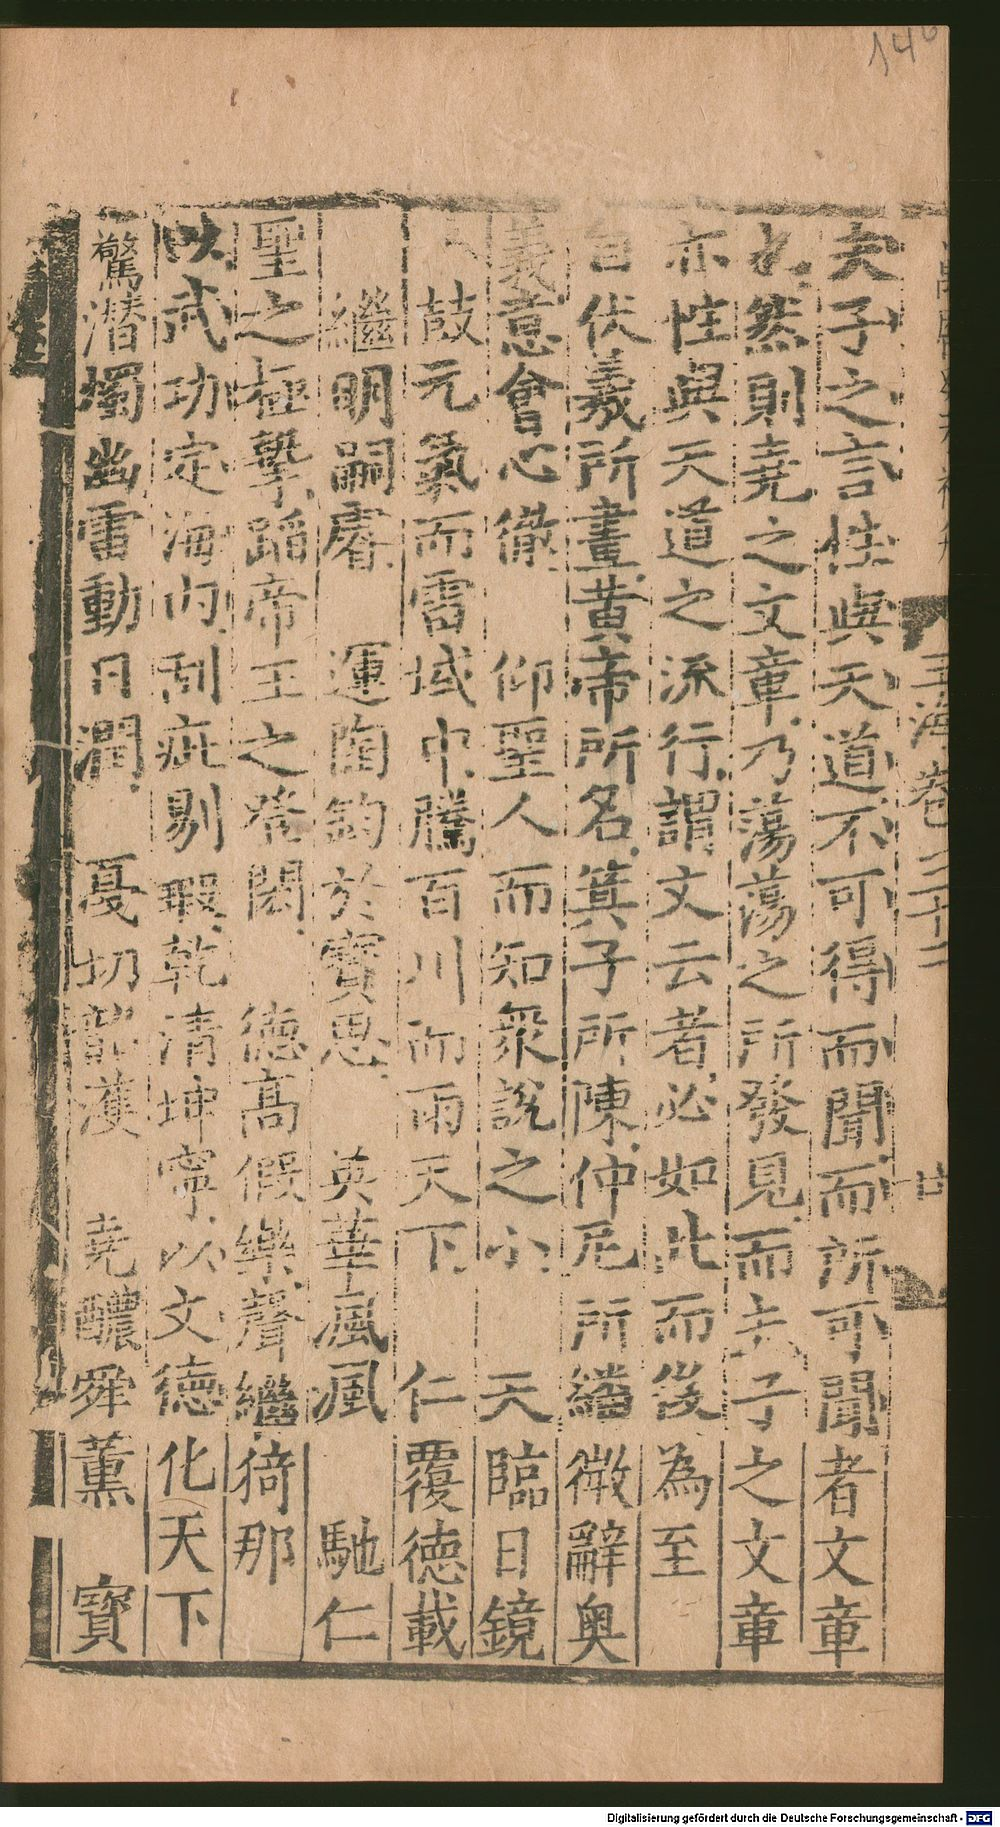 146
玉海卷二十二
廿
夫子之言性與天道不可得而聞而所可聞者文章
也然則堯之文章乃蕩蕩之所發見而夫子之文章
亦性與天道之流行謂文云者必如此而後為至
自伏羲所畫黄帝所名箕子所陳仲尼所繙微辭奥
義意會心徹 仰聖人而知衆說之小 天臨日鏡
鼓元氣而雷域中騰百川而雨天下 仁覆德載
繼明嗣睿 運陶鈞於寶思 英華風風 馳仁
聖之極摯蹈帝王之卷閎 德高假樂聲繼猗那
以武功定海内刮疵剔瑕乾清坤寧以文德化天下
驚潜燭幽雷動日潤 憂切韶濩 堯醲舜薰 寳
Digitalisierung gefördert durch die Deutsche Forschungsgemeinschaft - DFG